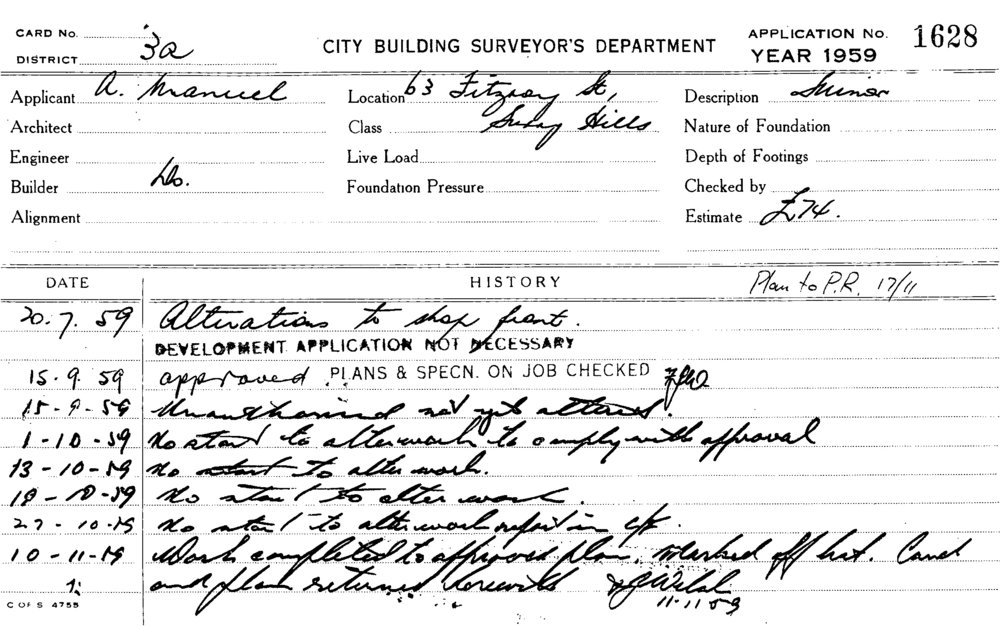 CARD No.
DISTRICT 3a
CITY BUILDING SURVEYOR'S DEPARTMENT
APPLICATION No. 1628
YEAR 1959
Applicant A. Manuel
Location 63 Fitzroy St,
Description Minor
Architect
Class Surry Hills
Nature of Foundation
Engineer
Live Load
Depth of Footings
Builder Do.
Foundation Pressure
Checked by
Alignment
Estimate £74.
DATE HISTORY Plan to P.R. 17/11
20.7.59 Alterations to shop front.
DEVELOPMENT APPLICATION NOT NECESSARY
15.9.59 approved PLANS & SPECN. ON JOB CHECKED
15-9-59 Unauthorised not yet altered.
1-10-59 No start to alter work to comply with approval
13-10-59 No start to alter work.
19-10-59 No start to alter work.
27-10-59 No start to alter work report in
10-11-59 Work completed to approved plan. Marked off list. Card
and plan returned herewith
11.11.59
C OF S 4755